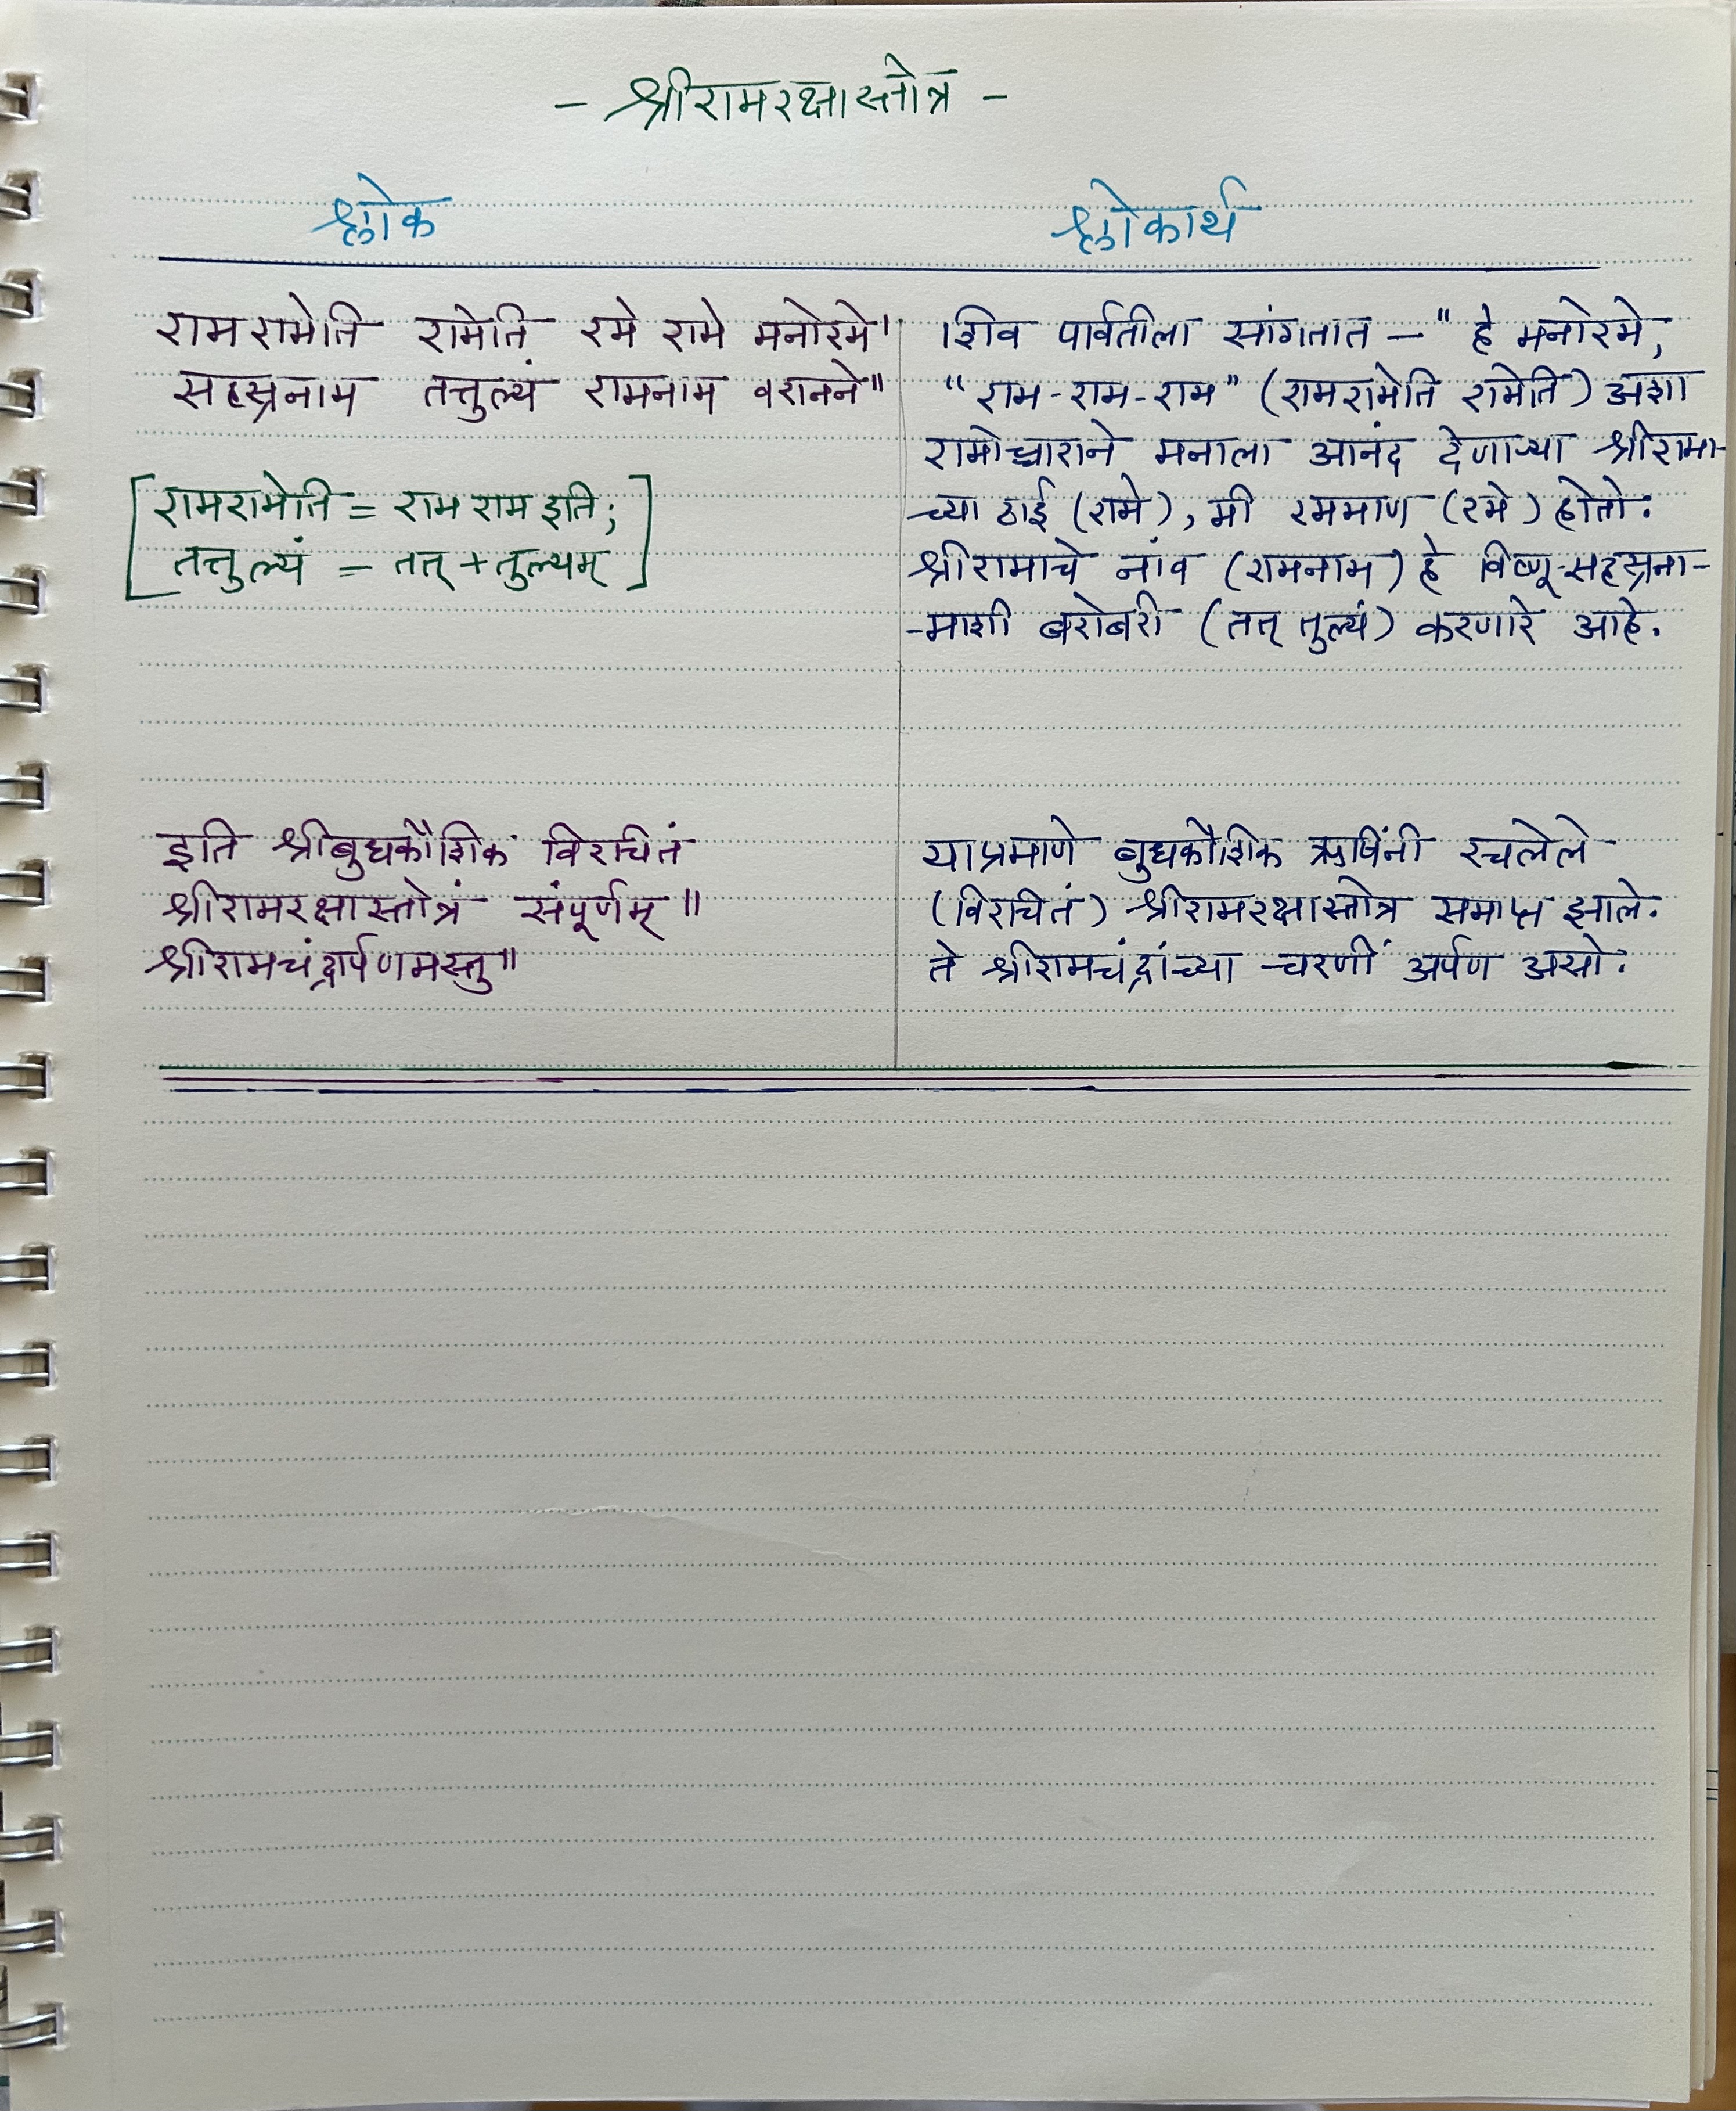 - श्रीरामरक्षास्तोत्र -
श्लोक
श्लोकार्थ
रामरामेति रामेति रमे रामे मनोरमे।
सहस्रनाम तत्तुल्यं रामनाम वरानने॥
[रामरामेति = राम राम इति;
तत्तुल्यं = तत् + तुल्यम्]
शिव पार्वतीला सांगतात - " हे मनोरमे,
“राम-राम-राम” (रामरामेति रामेति) अशा
रामोच्चाराने मनाला आनंद देणाऱ्या श्रीरामा-
च्या ठाई (रामे), मी रममाण (रमे) होतो.
श्रीरामाचे नांव (रामनाम) हे विष्णू-सहस्रना-
-माशी बरोबरी (तत् तुल्यं) करणारे आहे.
इति श्रीबुधकौशिक विरचितं
श्रीरामरक्षास्तोत्रं संपूर्णम्॥
श्रीरामचंद्रार्पणमस्तु॥
याप्रमाणे बुधकौशिक ऋषिंनी रचलेले
(विरचितं) श्रीरामरक्षास्तोत्र समाप्त झाले.
ते श्रीरामचंद्रांच्या चरणीं अर्पण असो.